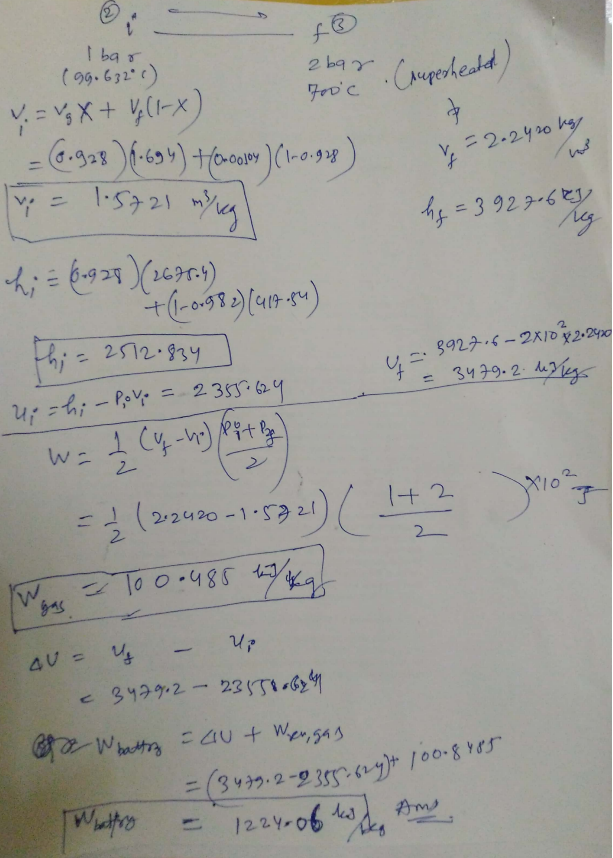 ② i f ③
1 bar
(99.632°C)
2 bar
700°C . (superheated)
v_i = v_g x + v_f (1-x)
= (0.928)(1.694) + (0.00104)(1-0.928)
v_i = 1.5721 m³/kg
v_f = 2.2420 kg/m³
h_f = 3927.6 kJ/kg
h_i = (0.928)(2675.4)
+ (1-0.982)(417.54)
h_i = 2512.834
u_i = h_i - P_i v_i = 2355.624
U_f = 3927.6 - 2×10² × 2.2420
= 3479.2 kJ/kg
W = 1/2 (v_f - v_i) (P_i + P_f / 2)
= 1/2 (2.2420 - 1.5721) ( 1+2 / 2 ) ×10²
W_gas = 100.485 kJ/kg
ΔU = u_f - u_i
= 3479.2 - 23558.624
W_battry = ΔU + W, gas
= (3479.2 - 2355.624) + 100.8485
W_battry = 1224.06 kJ/kg Ans.